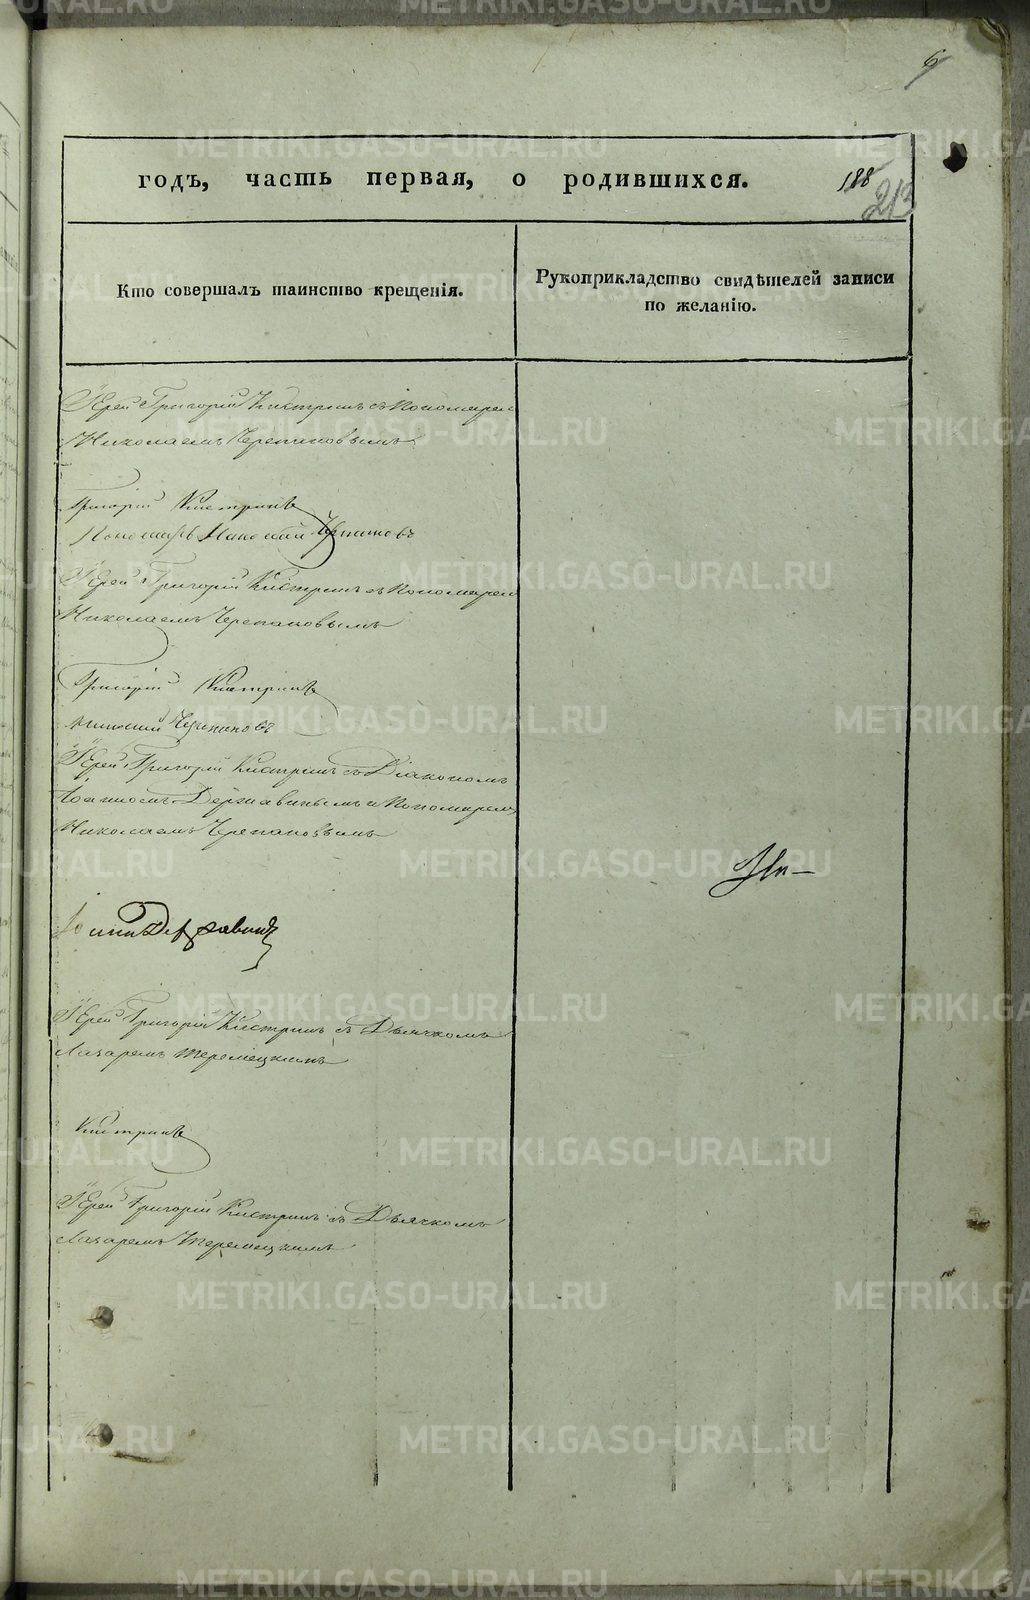 6
годъ, часть первая, о родившихся. 188
213
Кто совершалъ таинство крещенія.
Рукоприкладство свидѣтелей записи
по желанію.
Іерей Григорій Кистринъ съ Пономаремъ
Николаемъ Черепановымъ
Григорій Кистринъ
Пономарь Николай Черепановъ
Іерей Григорій Кистринъ съ Пономаремъ
Николаемъ Черепановымъ
Григорій Кистринъ
Николай Черепановъ
Іерей Григорій Кистринъ съ Діакономъ
Іоанномъ Державинымъ и Пономаремъ
Николаемъ Черепановымъ
Іоаннъ Державинъ
Іерей Григорій Кистринъ съ Дьячкомъ
Лазаремъ
Кистринъ
Іерей Григорій Кистринъ съ Дьячкомъ
Лазаремъ
METRIKI.GASO-URAL.RU